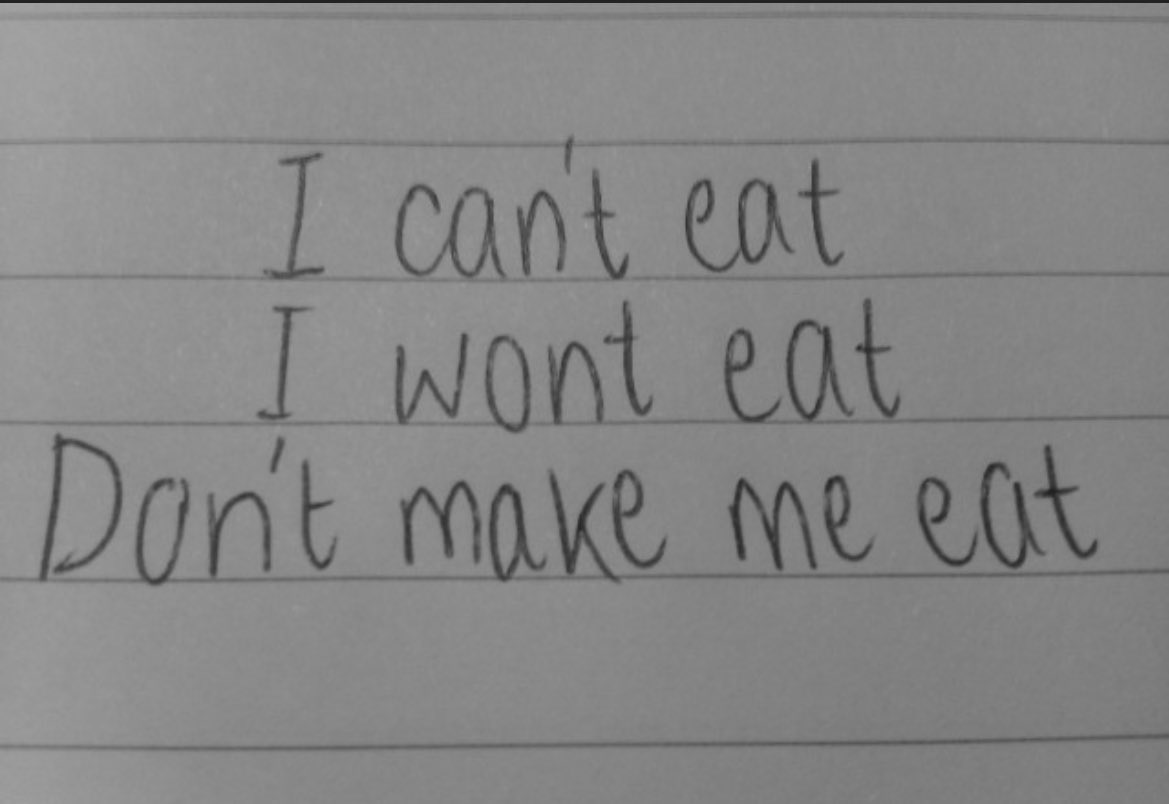 I can't eat
I wont eat
Don't make me eat